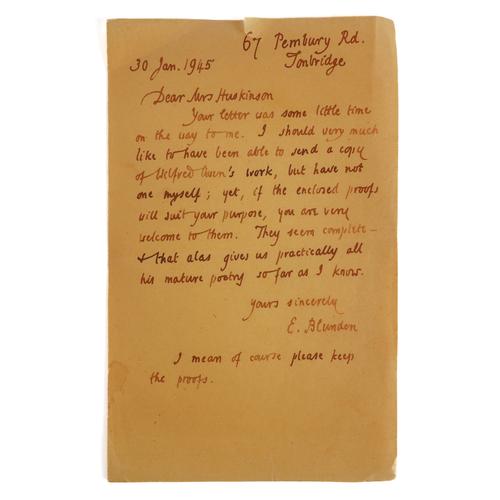 67 Pembury Rd.
30 Jan. 1945 Tonbridge
Dear Mrs Huskinson
Your letter was some little time
on the way to me. I should very much
like to have been able to send a copy
of Wilfred Owen's work, but have not
one myself; yet, if the enclosed proofs
will suit your purpose, you are very
welcome to them. They seem complete –
& that alas gives us practically all
his mature poetry so far as I know.
Yours sincerely
E. Blunden
I mean of course please keep
the proofs.